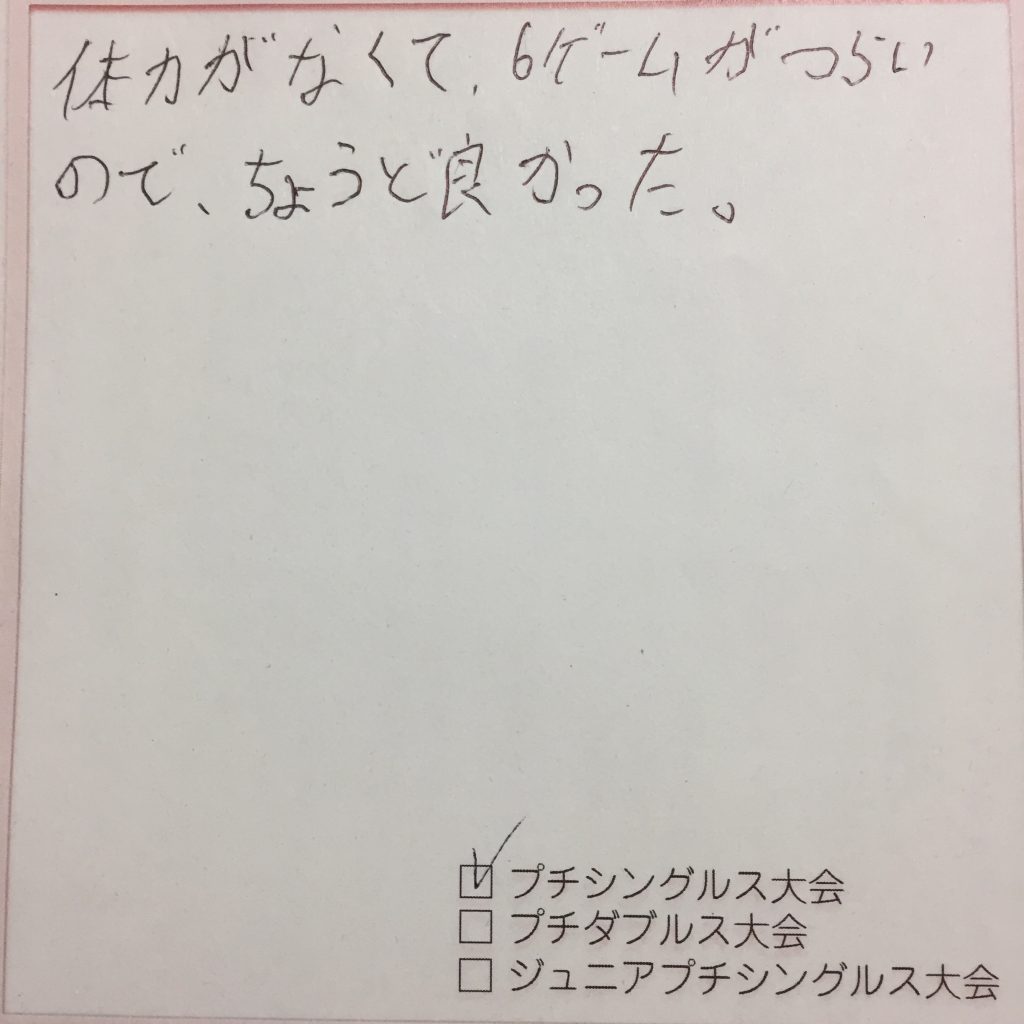 体力がなくて、6ゲームがつらい
ので、ちょうど良かった。
☑ プチシングルス大会
☐ プチダブルス大会
☐ ジュニアプチシングルス大会